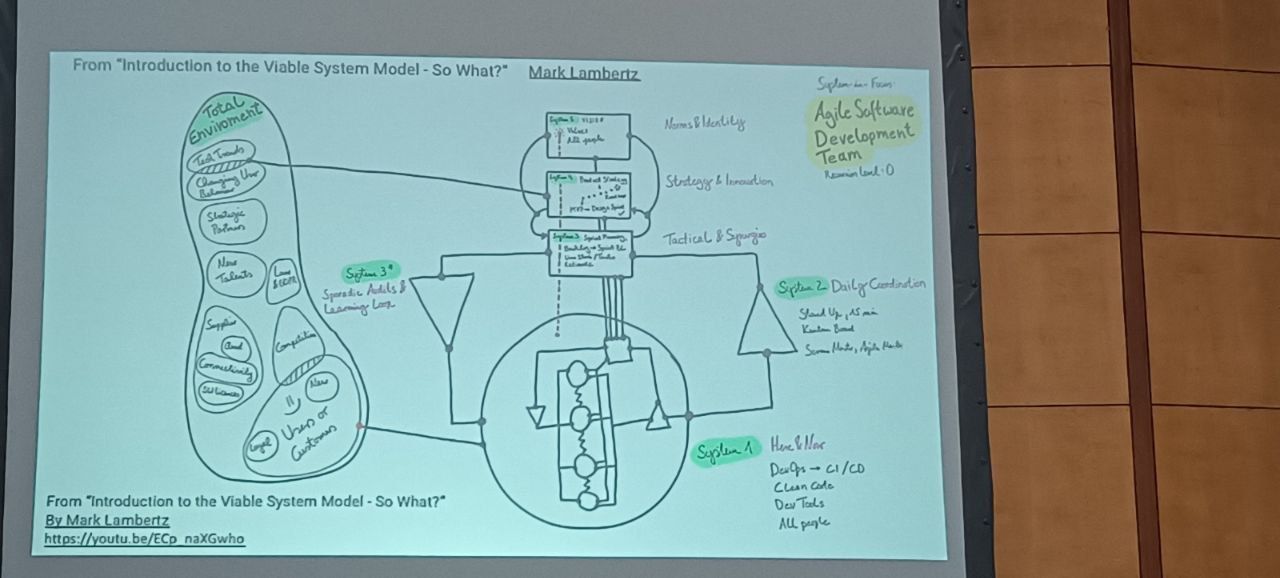 From "Introduction to the Viable System Model - So What?" Mark Lambertz
Total
Enviroment
Tech Trends
Changing User
Behavior
Strategic
Partners
New
Talents
Laws
& GDPR
Supplier
Cloud
Connectivity
SW Licences
Competition
New
Loyal
Users or
Customers
System 5
Values
All people
Norms & Identity
System 4 Product Strategy
Design Sprint
Strategy & Innovation
System 3 Sprint Planning
Backlog → Sprint
User Stories / Tasks
Estimate
Tactical & Synergio
System 3*
Sporadic Audits &
Learning Loop
System-in-Focus:
Agile Software
Development
Team
Recursion Level: 0
System 2 Daily Coordination
Stand Up, 15 min
Kanban Board
Scrum Master, Agile Master
System 1 Here & Now
DevOps → CI/CD
Clean Code
Dev Tools
All people
From "Introduction to the Viable System Model - So What?"
By Mark Lambertz
https://youtu.be/ECp_naXGwho